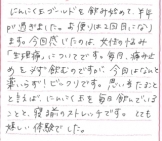 にんにく玉ゴールドを飲み始めて、半年
が過ぎました。お便りは2回目になり
ます。今回感じたのは、女性の悩み
「生理痛」についてです。毎月、痛み止
めを必ず飲むのですが、今回はなんと
薬いらず！ビックリです。思いあたるこ
とと言えば、にんにく玉を毎日飲んでいる
ことと、寝る前のストレッチです。とても
嬉しい体験でした。